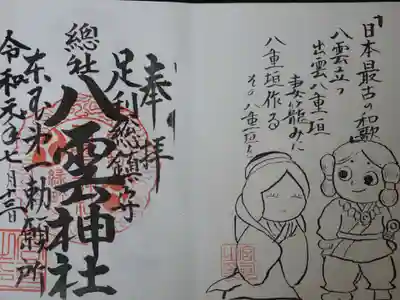 「日本最古の和歌」
八雲立つ
出雲八重垣
妻籠みに
八重垣作る
その八重垣を
奉拝
足利總鎮守
總社
八雲神社
東国第一勅願所
令和元年七月